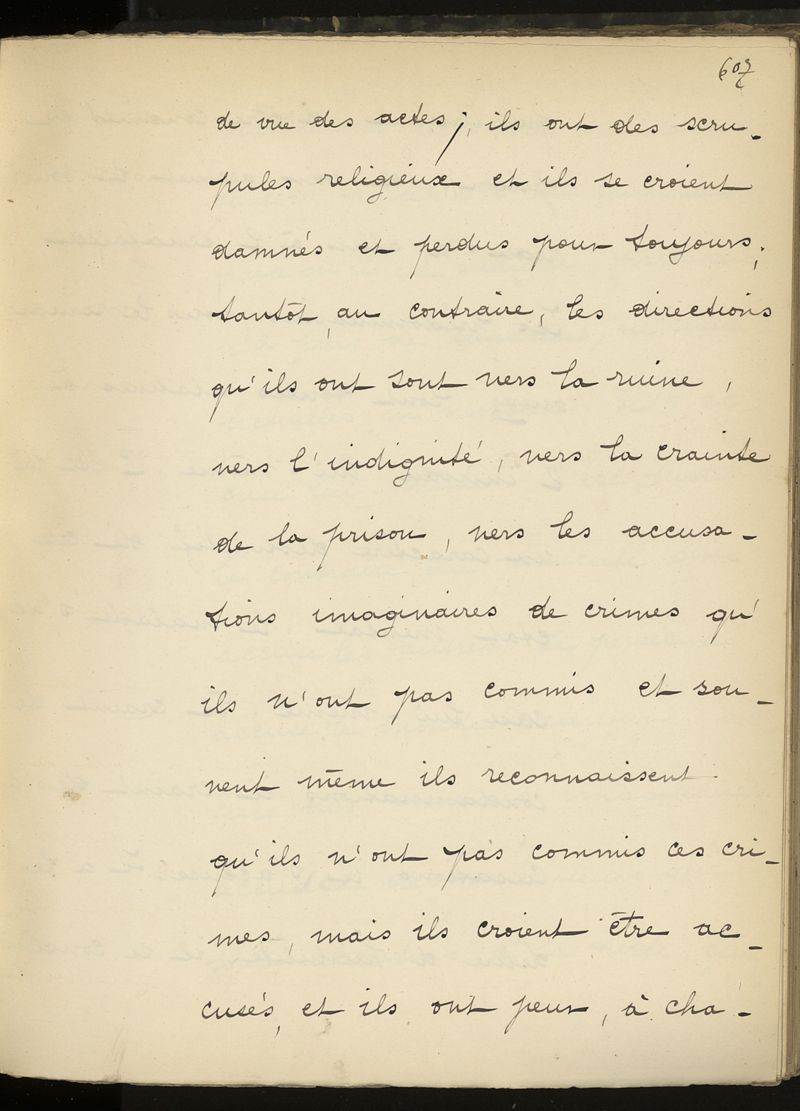 607
de vue des actes; ils ont des scru-
pules religieux et ils se croient
damnés et perdus pour toujours;
tantôt, au contraire, les directions
qu'ils ont sont vers la ruine,
vers l'indignité, vers la crainte
de la prison, vers les accusa-
tions imaginaires de crimes qu'
ils n'ont pas commis et sou-
vent même ils reconnaissent
qu'ils n'ont pas commis ces cri-
mes, mais ils croient être ac-
cusés, et ils ont peur, à cha-